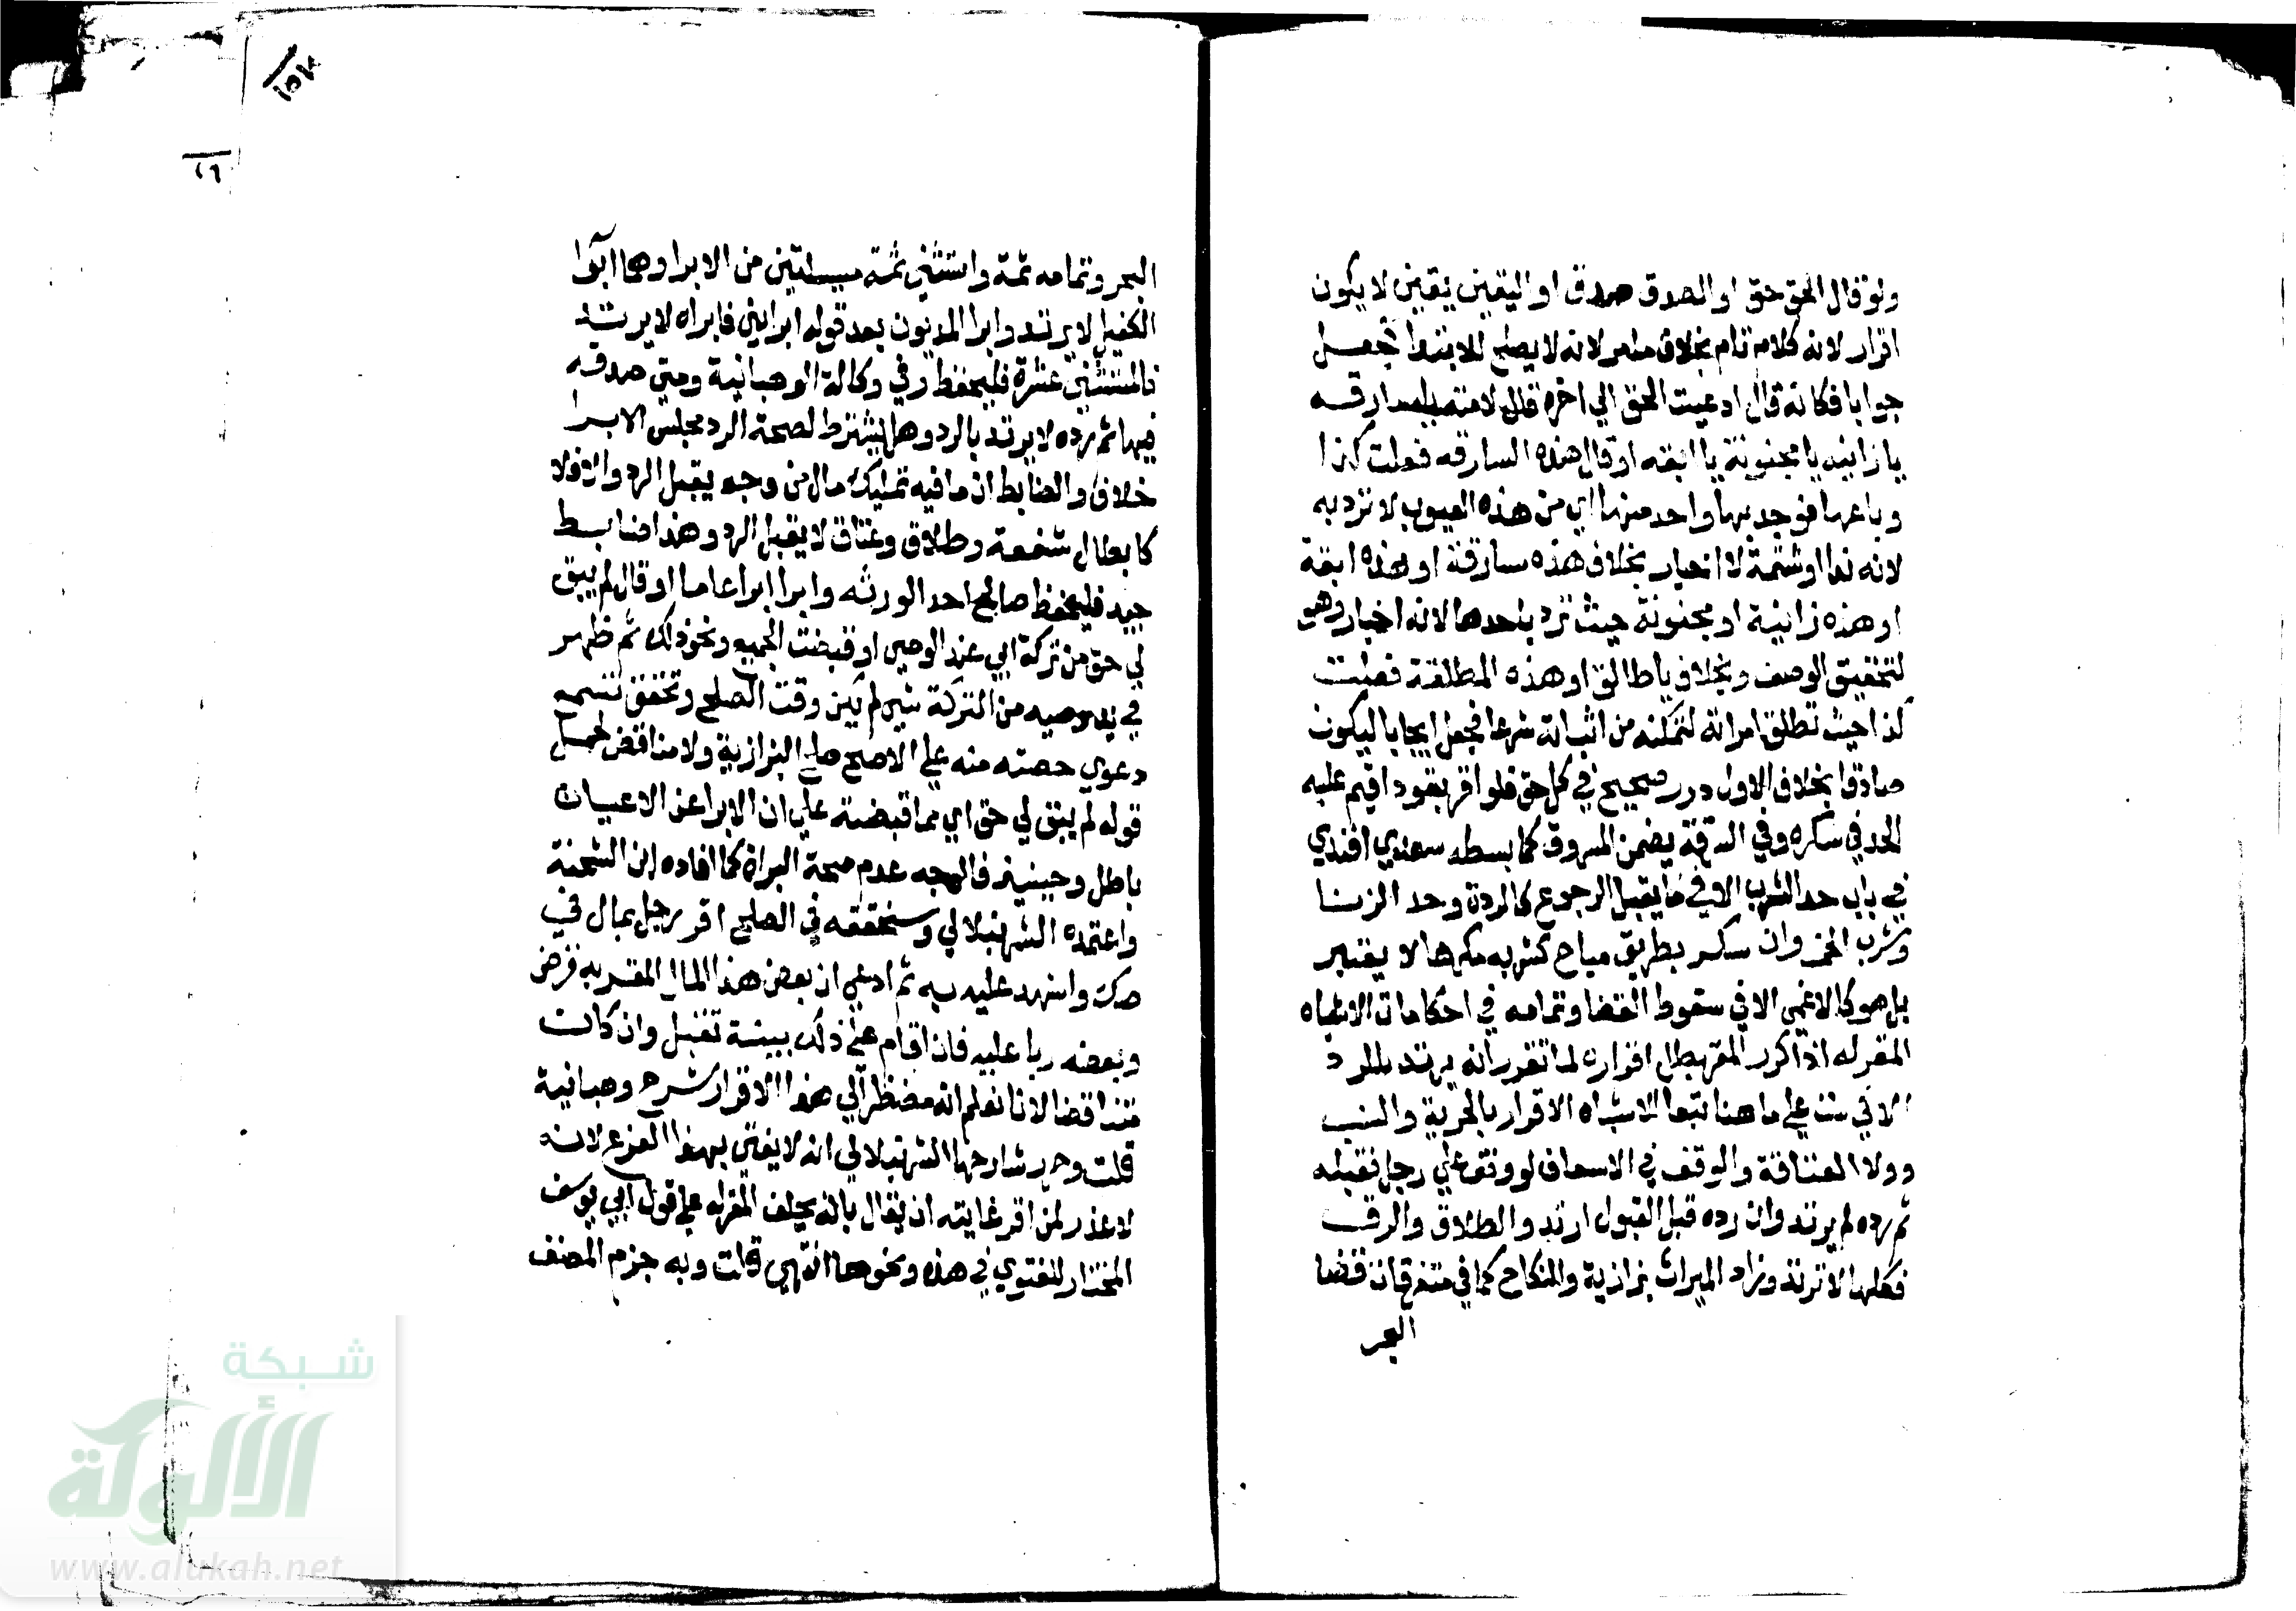 ولو قال الحق حق او الصدق صدق او اليقين يقين لا يكون
اقرار لانه كلام تام بخلاف مامر لانه لا يصلح للابتدا فجعل
جوابا فكانه قال ادعيت الحق الي اخره قال لامته يا سارقه
يا زانيه يا مجنونة يا ابقه او قال هذه السارقه فعلت كذا
وباعها فوجد بها واحد منها اي من هذه العيوب لا ترد به
لانه ندا او شتمة لا اخبار بخلاف هذه سارقة او هذه ابقة
او هذه زانية او مجنونة حيث ترد باحدها لانه اخبار وهو
لتحقيق الوصف وبخلاف يا طالق او هذه المطلقة فعلت
كذا حيث تطلق امراته لتمكنه من اثباته شرعا فجعل ايجابا ليكون
صادقا بخلاف الاول درر صحيح في كل حق فلو اقر بقود اقيم عليه
الحد في سكره وفي السرقة يضمن المسروق كما بسطه سعدي افندي
في باب حد الشرب الا في ما يقبل الرجوع كالردة وحد الزنا
وشرب الخمر وان سكر بطريق مباح كشربه مكرها لا يعتبر
بل هو كالاغمي الا في سقوط القضا وتمامه في احكامات الاشباه
المقر له اذا كذب المقر بطل اقراره لما تقرر انه يرتد بالرد
الا في ست علي ما هنا تبعا للاشباه الاقرار بالحرية والنسب
وولا العتاقة والوقف في الاسعاف لو وقف علي رجل فقبله
ثم رده لم يرتد وان رده قبل القبول ارتد والطلاق والرق
فكلها لا ترتد وزاد الميراث بزازية والنكاح كما في متفرقات قضا
البحر
١٥٢
٢٦
البحر وتمامه ثمة واستثني ثمة مسيلتين من الابرا وهما ابرا
الكفيل لا يرتد وابرا المديون بعد قوله ابرايني فابراه لا يرتد
فالمستثني عشرة فليحفظ وفي وكالة الوهبانية ومتي صدقه
فيها ثم رده لا يرتد بالرد وهل يشترط لصحة الرد مجلس الابرا
خلاف والضابط ان ما فيه تمليك مال من وجه يقبل الرد والا فلا
كابطال شفعة وطلاق وعتاق لا يقبل الرد وهذا ضابط
جيد فليحفظ صالح احد الورثه وابرا ابرا عاما او قال لم يبق
لي حق من تركة ابي عند الوصي او قبضت الجميع ونحو ذلك ثم ظهر
في يد وصيه من التركة شي لم يكن وقت الصلح وتحقق تسمع
دعوي حصته منه علي الاصح صلح البزازية ولا مناقض لحمل
قوله لم يبق لي حق اي مما قبضته علي ان الابرا عن الاعيان
باطل وحينيذ فالوجه عدم صحة البراة كما افاده ابن الشحنة
واعتمده الشرنبلالي وسنحققه في الصلح اقر رجل بمال في
صك واشهد عليه به ثم ادعي ان بعض هذا المال المقر به قرض
وبعضه ربا عليه فان اقام علي ذلك بينة تقبل وان كانت
متناقضا لانا نعلم انه مضطر الي هذا الاقرار شرح وهبانية
قلت وحرر شارحها الشرنبلالي انه لا يفتي بهذا الفرع لانه
لا عذر لمن اقر غايته ان يقال بانه يحلف المقر له علي قول ابي يوسف
المختار للفتوي في هذه ونحوها انتهي قلت وبه جزم المصنف
شبكة
الألوكة
www.alukah.net